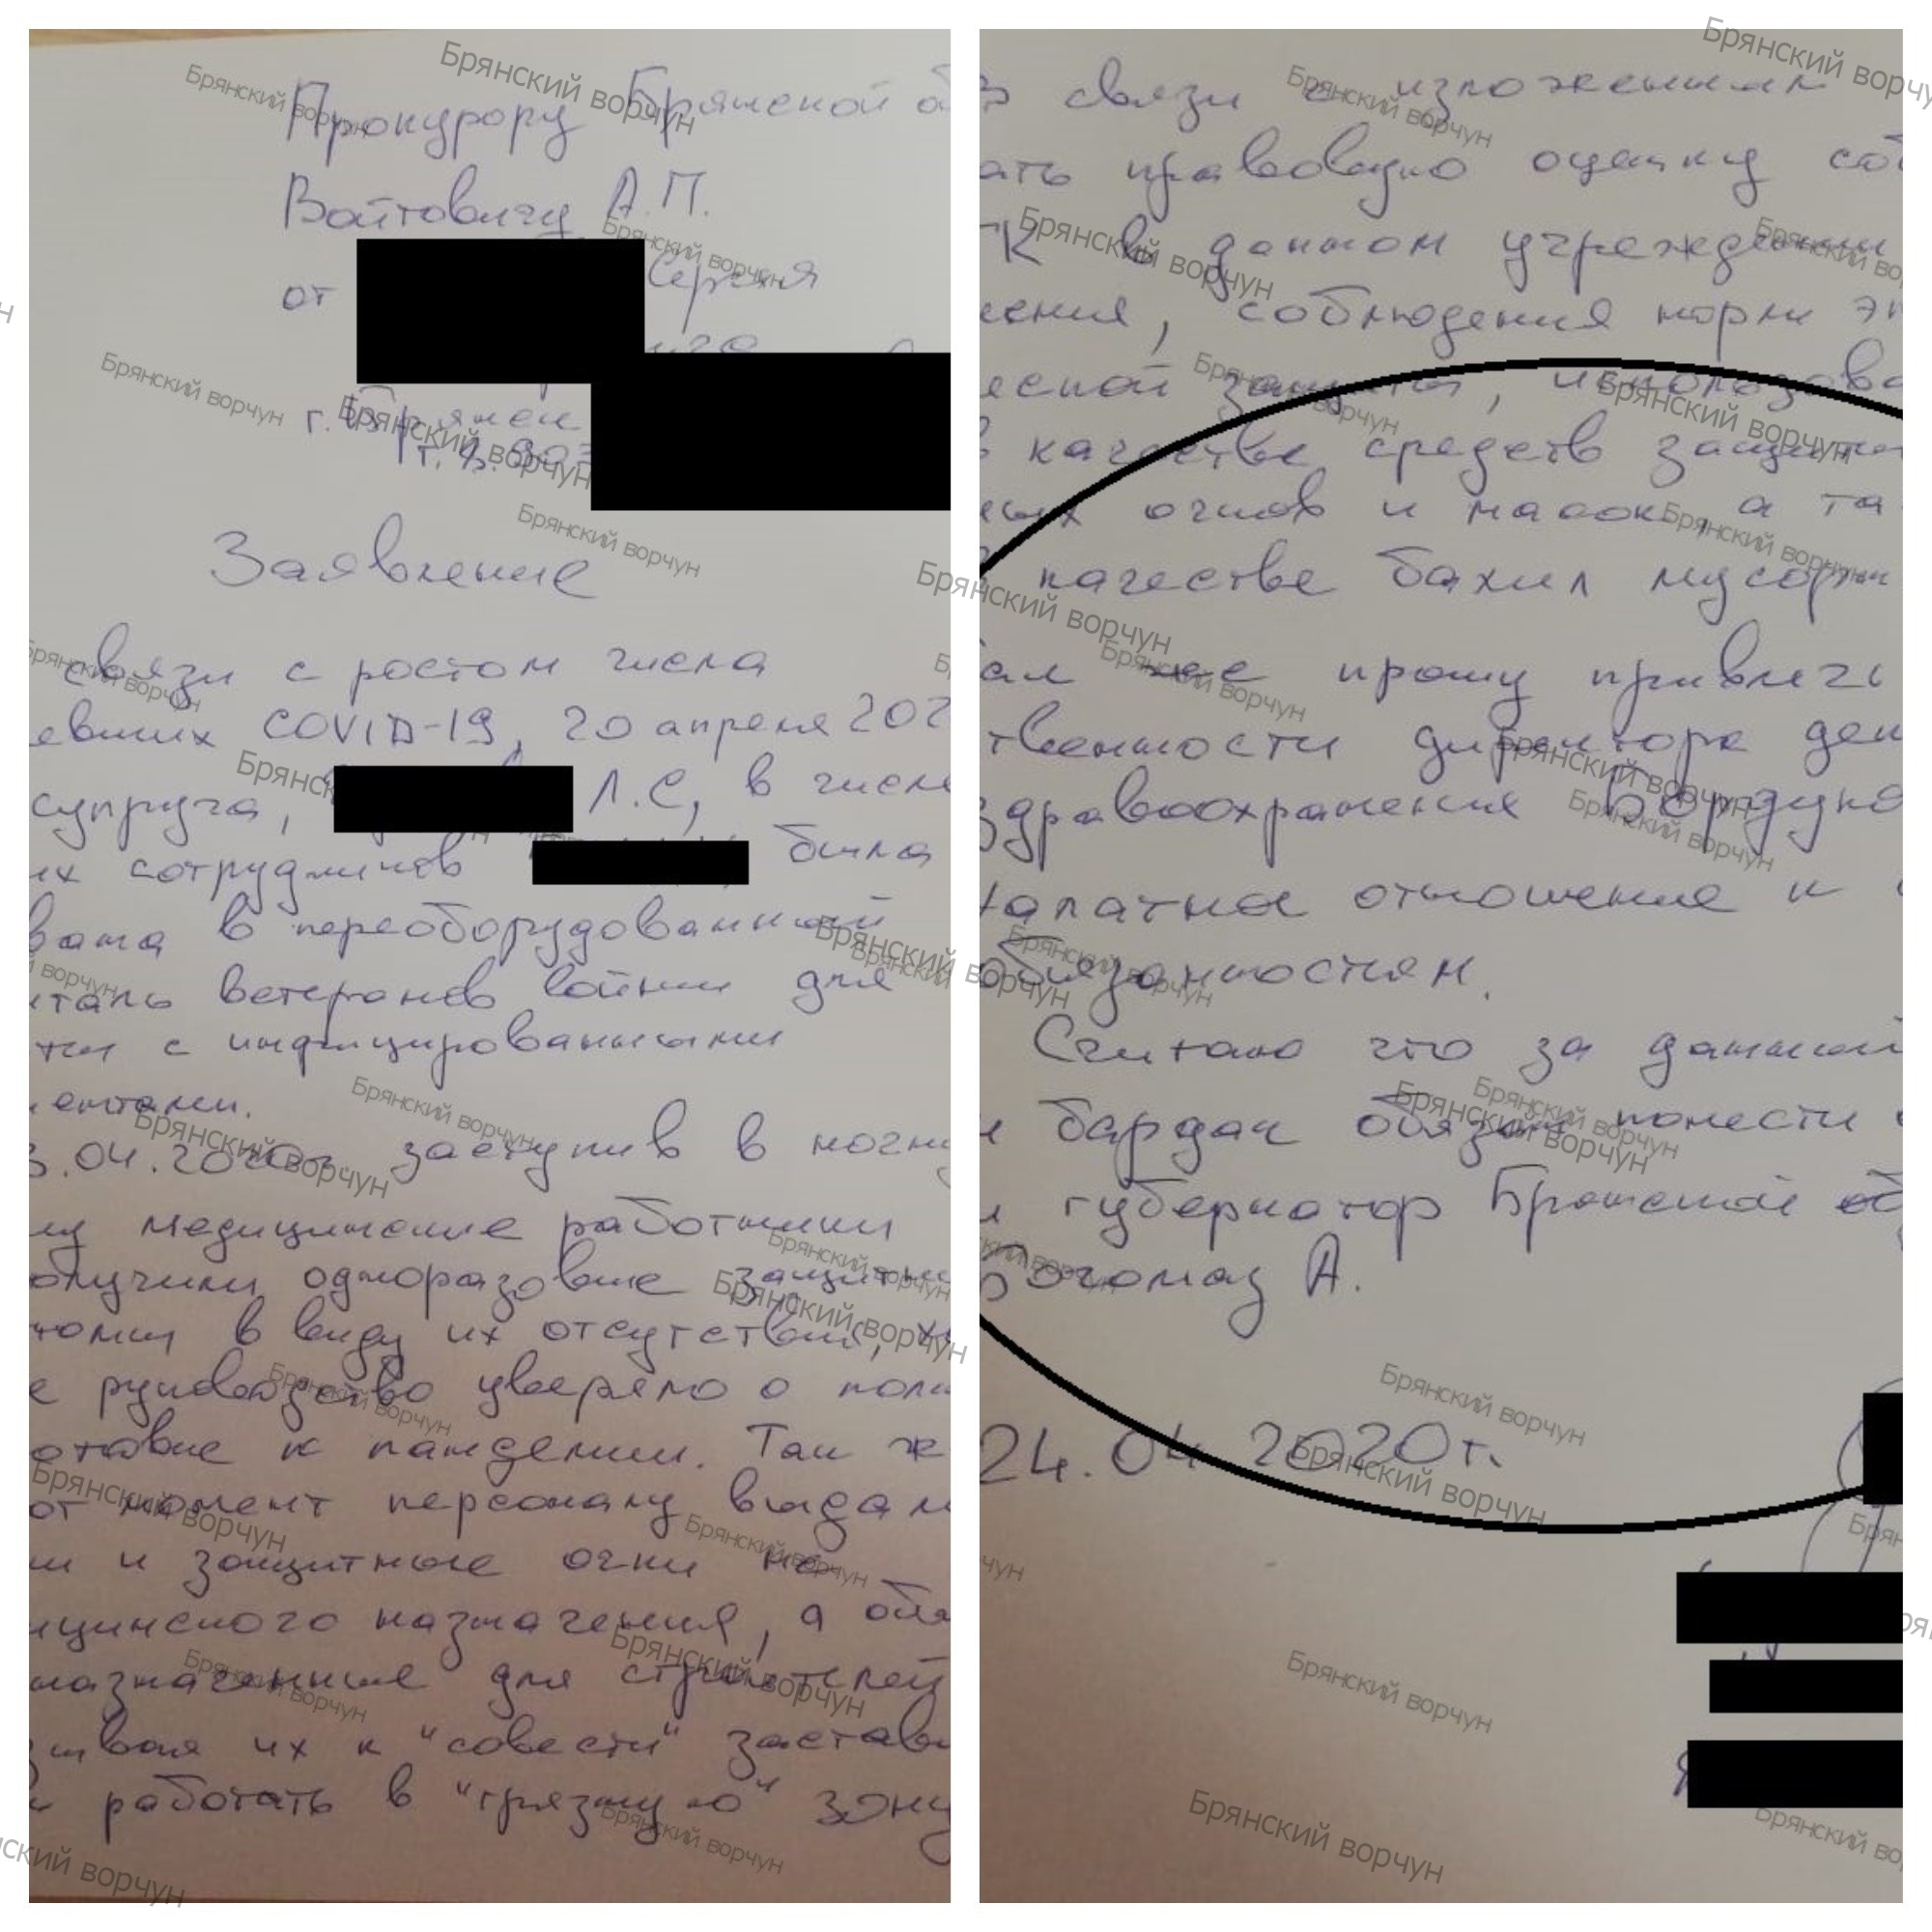 Прокурору Брянской о
Войтовичу А.П.
от Сергея
г. Брянск
Заявление
связи с ростом числа
евших COVID-19, 20 апреля 202
супруга, Л.С, в числе
их сотрудников была
вана в переоборудованный
италь ветеранов войны для
ты с инфицированными
ентами.
3.04.2020г. заступив в ночну
му медицинские работники
олучили одноразовые защитные
в виду их отсутствия,
е руководство уверяло о полн
отовке к пандемии. Так же
от момент персоналу выдали
и и защитные очки не
ицинского назначения, а обы
назначенные для строителей
зывая их к "совести" застави
и работать в "грязную" зону
В связи с изложенным
ать правовую оценку соб
ТК в данном учреждении
ения, соблюдения норм эп
еской защиты, использова
в качестве средств защиты
ных очков и масок, а та
качестве бахил мусорн
ал же прошу привлечь
твенности директора деп
здравоохранения Бардуко
халатное отношение к
обязанностям.
Считаю что за данный
и бардак обязан понести
и губернатор Брянской об
Богомаз А.
24.04 2020г.
Брянский ворчун